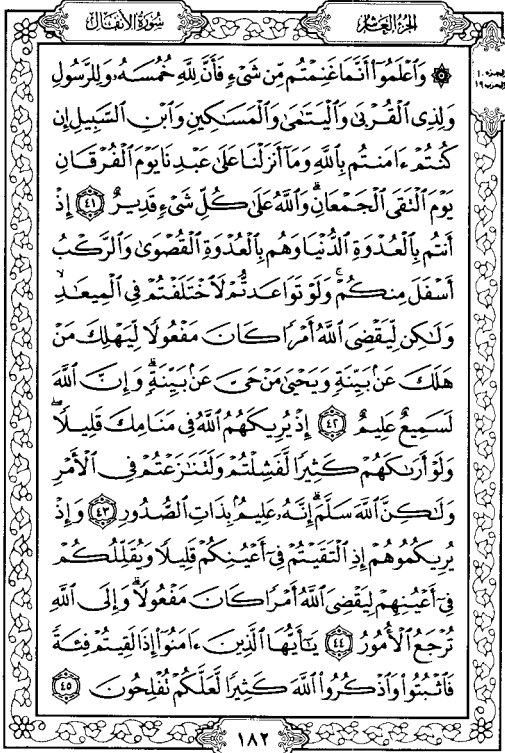 سُورَةُ الأَنفَالِ
الجُزْءُ العَاشِرُ
الجزء ١٠
الحزب ١٩
۞ وَٱعۡلَمُوٓاْ أَنَّمَا غَنِمۡتُم مِّن شَيۡءٖ فَأَنَّ لِلَّهِ خُمُسَهُۥ وَلِلرَّسُولِ
وَلِذِي ٱلۡقُرۡبَىٰ وَٱلۡيَتَٰمَىٰ وَٱلۡمَسَٰكِينِ وَٱبۡنِ ٱلسَّبِيلِ إِن
كُنتُمۡ ءَامَنتُم بِٱللَّهِ وَمَآ أَنزَلۡنَا عَلَىٰ عَبۡدِنَا يَوۡمَ ٱلۡفُرۡقَانِ
يَوۡمَ ٱلۡتَقَى ٱلۡجَمۡعَانِۗ وَٱللَّهُ عَلَىٰ كُلِّ شَيۡءٖ قَدِيرٌ ٤١ إِذۡ
أَنتُم بِٱلۡعُدۡوَةِ ٱلدُّنۡيَا وَهُم بِٱلۡعُدۡوَةِ ٱلۡقُصۡوَىٰ وَٱلرَّكۡبُ
أَسۡفَلَ مِنكُمۡۚ وَلَوۡ تَوَاعَدتُّمۡ لَٱخۡتَلَفۡتُمۡ فِي ٱلۡمِيعَٰدِ
وَلَٰكِن لِّيَقۡضِيَ ٱللَّهُ أَمۡرٗا كَانَ مَفۡعُولٗا لِّيَهۡلِكَ مَنۡ
هَلَكَ عَنۢ بَيِّنَةٖ وَيَحۡيَىٰ مَنۡ حَيَّ عَنۢ بَيِّنَةٖۗ وَإِنَّ ٱللَّهَ
لَسَمِيعٌ عَلِيمٌ ٤٢ إِذۡ يُرِيكَهُمُ ٱللَّهُ فِي مَنَامِكَ قَلِيلٗاۖ
وَلَوۡ أَرَىٰكَهُمۡ كَثِيرٗا لَّفَشِلۡتُمۡ وَلَتَنَٰزَعۡتُمۡ فِي ٱلۡأَمۡرِ
وَلَٰكِنَّ ٱللَّهَ سَلَّمَۗ إِنَّهُۥ عَلِيمُۢ بِذَاتِ ٱلصُّدُورِ ٤٣ وَإِذۡ
يُرِيكُمُوهُمۡ إِذِ ٱلۡتَقَيۡتُمۡ فِيٓ أَعۡيُنِكُمۡ قَلِيلٗا وَيُقَلِّلُكُمۡ
فِيٓ أَعۡيُنِهِمۡ لِيَقۡضِيَ ٱللَّهُ أَمۡرٗا كَانَ مَفۡعُولٗاۗ وَإِلَى ٱللَّهِ
تُرۡجَعُ ٱلۡأُمُورُ ٤٤ يَٰٓأَيُّهَا ٱلَّذِينَ ءَامَنُوٓاْ إِذَا لَقِيتُمۡ فِئَةٗ
فَٱثۡبُتُواْ وَٱذۡكُرُواْ ٱللَّهَ كَثِيرٗا لَّعَلَّكُمۡ تُفۡلِحُونَ ٤٥
١٨٢